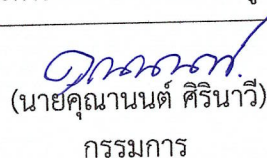 (นายคุณานนต์ ศิรินาวี)
กรรมการ